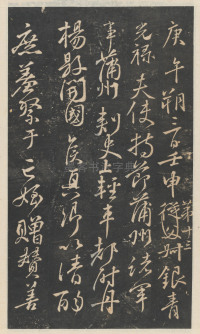 庚午朔三日壬申第十三從父叔銀青
光祿夫使持節蒲州諸軍
事蒲州刺史上輕車都尉丹
楊縣開國侯真卿以清酌
庶羞祭于亡姪贈贊善